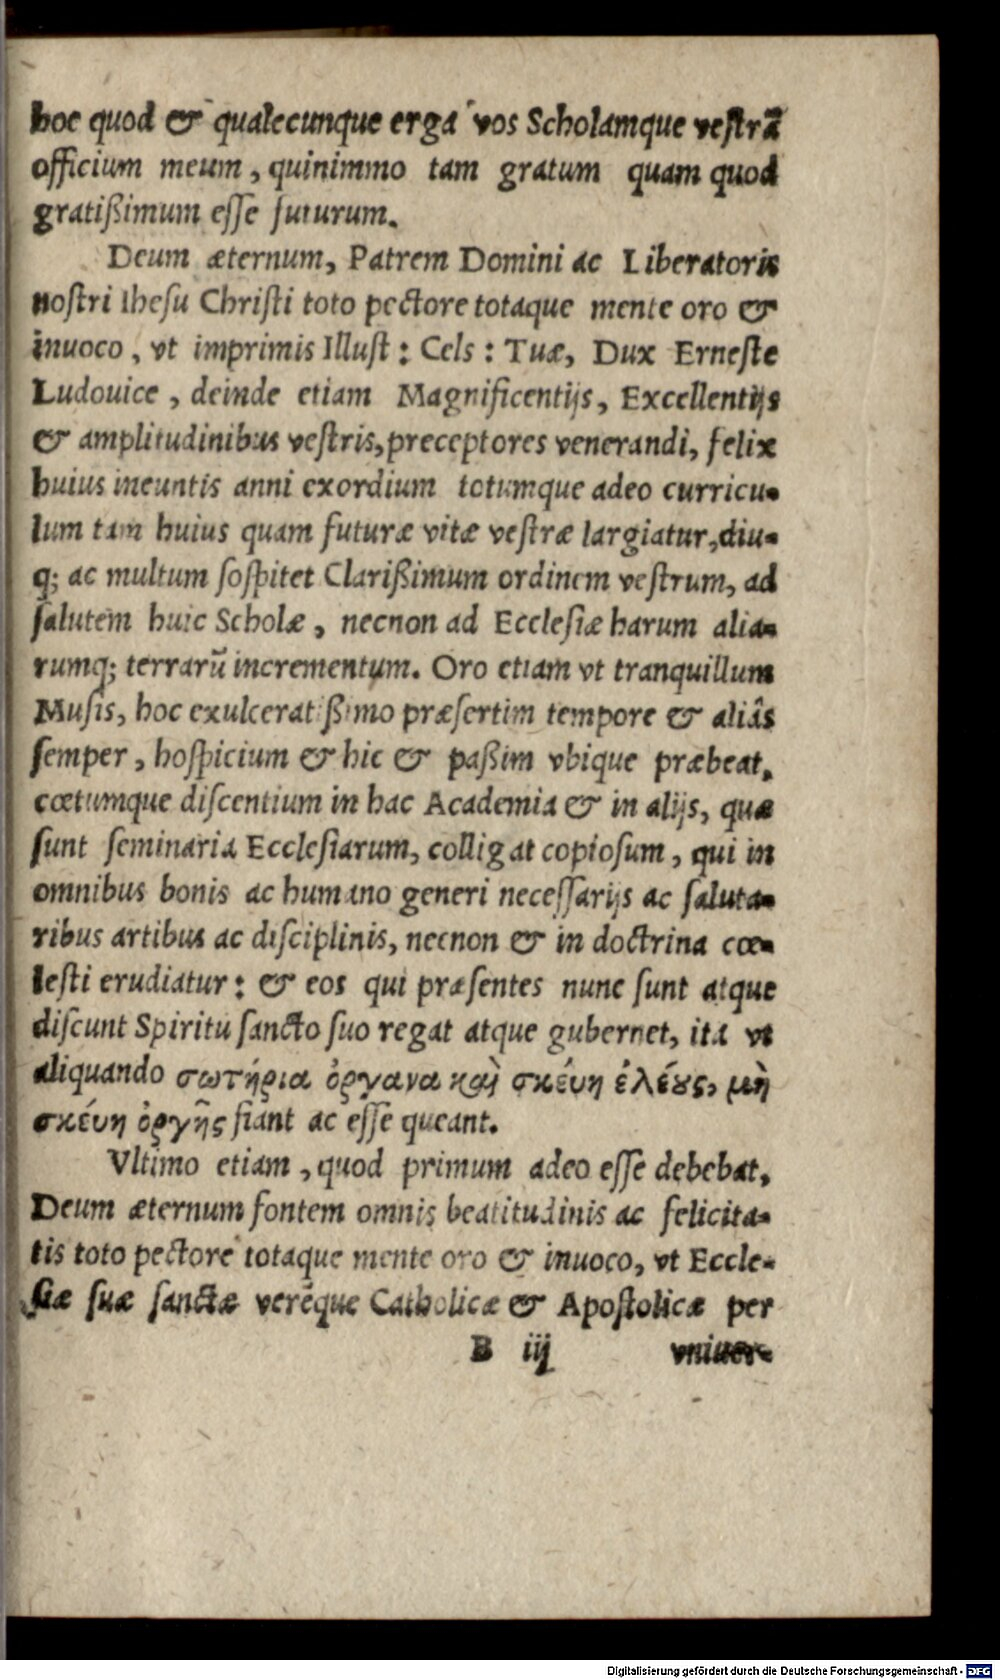 hoc quod & qualecunque erga vos Scholamque vestrã
officium meum, quinimmo tam gratum quam quod
gratißimum esse futurum.
Deum æternum, Patrem Domini ac Liberatoris
nostri Ihesu Christi toto pectore totaque mente oro &
inuoco, vt imprimis Illust: Cels: Tuæ, Dux Erneste
Ludouice, deinde etiam Magnificentijs, Excellentijs
& amplitudinibus vestris, preceptores venerandi, felix
huius ineuntis anni exordium totumque adeo curricu-
lum tam huius quam futuræ vitæ vestræ largiatur, diu-
q; ac multum sospitet Clarißimum ordinem vestrum, ad
salutem huic Scholæ, necnon ad Ecclesiæ harum alia-
rumq; terrarũ incrementum. Oro etiam vt tranquillum
Musis, hoc exulceratißimo præsertim tempore & aliâs
semper, hospicium & hic & paßim vbique præbeat,
cœtumque discentium in hac Academia & in alijs, quæ
sunt seminaria Ecclesiarum, colligat copiosum, qui in
omnibus bonis ac humano generi necessarijs ac saluta-
ribus artibus ac disciplinis, necnon & in doctrina cœ-
lesti erudiatur: & eos qui præsentes nunc sunt atque
discunt Spiritu sancto suo regat atque gubernet, ita vt
aliquando σωτήρια ὀργανα καὶ σκέυη ἐλέους, μὴ
σκέυη ὀργῆς fiant ac esse queant.
Vltimo etiam, quod primum adeo esse debebat,
Deum æternum fontem omnis beatitudinis ac felicita-
tis toto pectore totaque mente oro & inuoco, vt Eccle-
siæ suæ sanctæ verèque Catholicæ & Apostolicæ per
B iij vniuer-
Digitalisierung gefördert durch die Deutsche Forschungsgemeinschaft - DFG